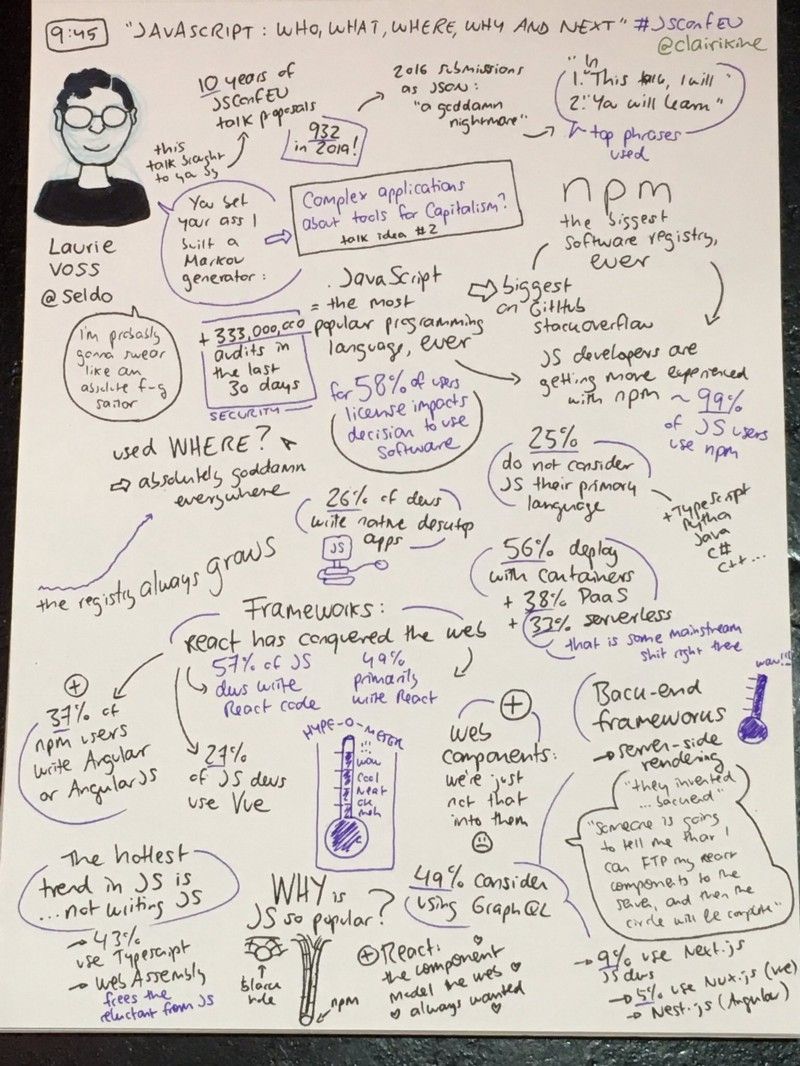 9:45 "JAVASCRIPT: WHO, WHAT, WHERE, WHY AND NEXT" #JSCONFEU
@clairikine
this
talk brought
to ya by
10 years of
JSConfEU
talk proposals
932
in 2019!
2016 submissions
as JSON:
"a goddamn
nightmare"
1. "This talk, I will"
2. "You will learn"
top phrases
used
Laurie
Voss
@seldo
You bet
your ass I
built a
Markov
generator:
Complex applications
about tools for Capitalism?
talk idea #2
npm
the biggest
software registry,
ever
I'm probably
gonna swear
like an
absolute f-g
sailor
+ 333,000,000
audits in
the last
30 days
SECURITY
JavaScript
= the most
popular programming
language, ever
biggest
on GitHub
stackoverflow
JS developers are
getting more experienced
with npm ~ 99%
of JS users
use npm
for 58% of users
license impacts
decision to use
software
used WHERE?
absolutely goddamn
everywhere
25%
do not consider
JS their primary
language
+ TypeScript
Python
Java
C#
C++ ...
26% of devs
write native desktop
apps
JS
the registry always grows
56% deploy
with containers
+ 38% PaaS
+ 33% serverless
that is some mainstream
shit right there
Frameworks:
React has conquered the web
57% of JS
devs write
React code
49%
primarily
write React
+
37% of
npm users
write Angular
or AngularJS
27%
of JS devs
use Vue
HYPE-O-METER
!!!
wow
Cool
Neat
ok
meh
+
web
components:
we're just
not that
into them
Back-end
frameworks
→ server-side
rendering
wow!!!
"they invented
... backend"
"Someone is going
to tell me that I
can FTP my react
components to the
server, and then the
circle will be complete"
The hottest
trend in JS is
...not writing JS
→ 43%
use Typescript
→ Web Assembly
frees the
reluctant from JS
WHY is
JS so popular?
black
hole
npm
49% consider
using GraphQL
+ React:
the component
model the web
always wanted
→ 9% use Next.js
JS devs
→ 5% use Nux.js (Vue)
→ Nest.js (Angular)